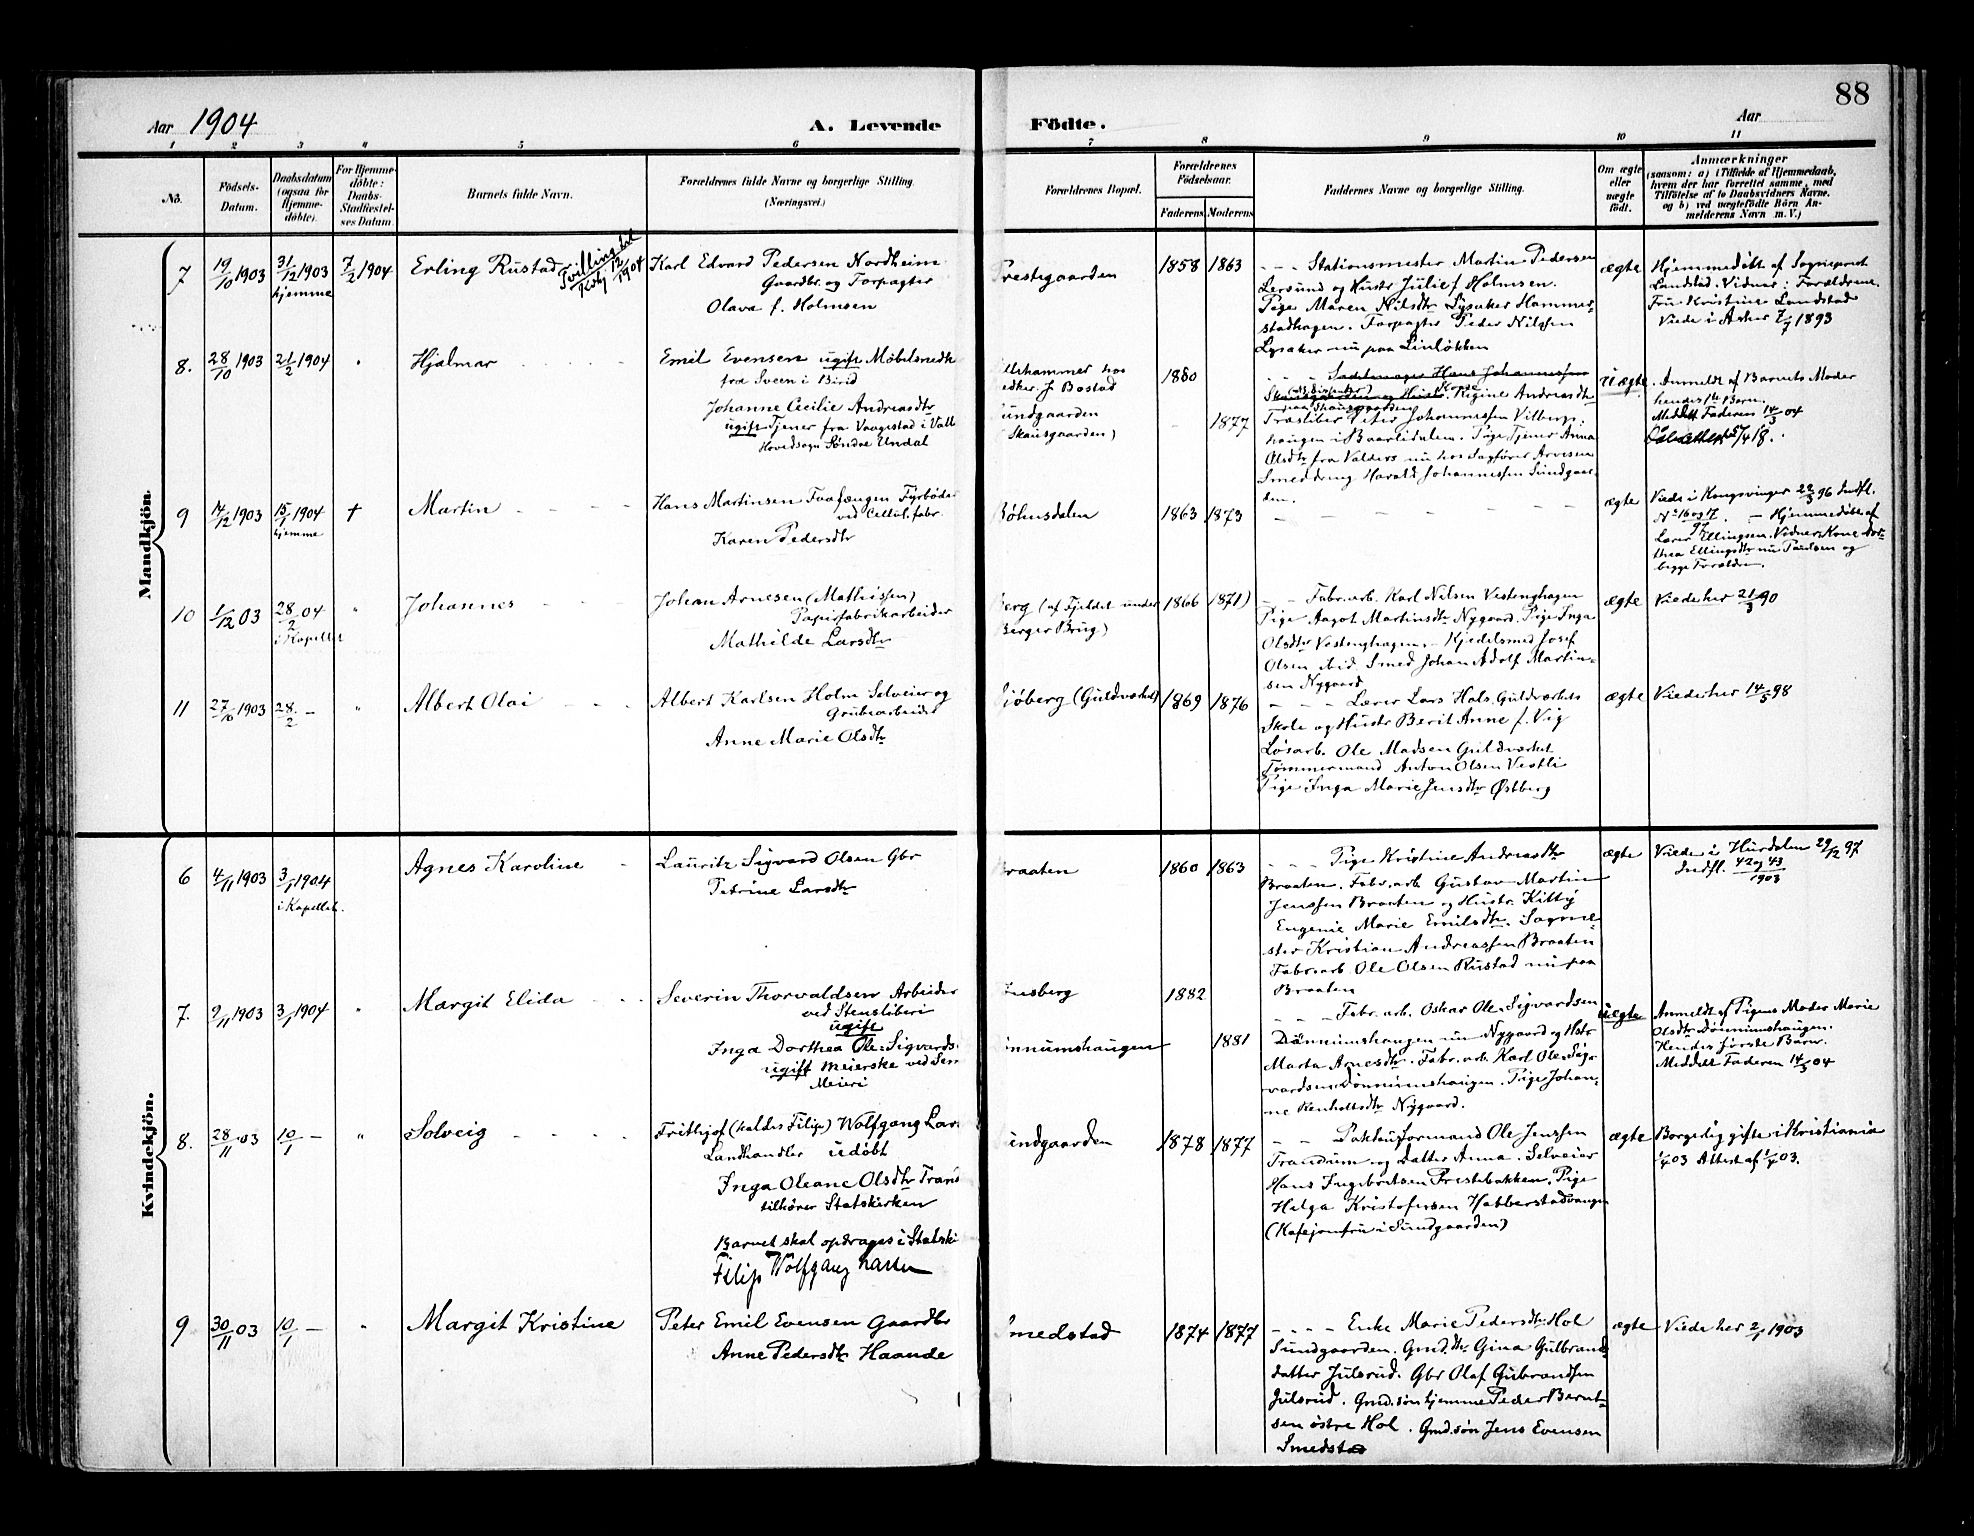 88
Aar 1904
A. Levende
Födte.
Aar
1 2 3 4 5 6
7 8 9 10 11
No.
Födsels-
Datum.
Daabsdatum
(ogsaa for
Hjemme-
döbte).
For Hjemme-
döbte:
Daabs-
Stadfæstel-
ses Datum
Barnets fulde Navn.
Forældrenes fulde Navne og borgerlige Stilling.
(Næringsvei.)
Forældrenes Bopæl.
Forældrenes
Födselsaar.
Faderens Moderens
Faddernes Navne og borgerlige Stilling.
Om ægte
eller
uægte
födt.
Anmærkninger
(saasom: a) i Tilfælde af Hjemmedaab,
hvem der har forrettet samme, med
Tilföielse af to Daabsvidners Navne,
og b) ved uægtefödte Börn An-
melderens Navn m. V.)
Mandkjön.
7 19/10 1903 31/12 1903 7/2 1904 Erling Rustad
hjemme
Karl Edvard Pedersen Nordheim
Gaardbr. og Forpagter
Olava f. Holmsen
Prestegaarden 1858 1863
Stationsmester Martin Pedersen
Lersund og Hustr Julie f Holmsen.
Pige Maren Nilsdtr Lysaker Hammer-
stadhagen. Forpagter Peder Nilssen
Lysaker nu paa Linløkken
ægte
Hjemmedøbt af Sogneprest
Landstad. Vidner: Forældrene.
Fru Kristine Landstad
Viede i Asker 7/7 1893
8. 28/10 1903 21/2 1904 " Hjalmar
Emil Evensen ugift Møbelsnedk
fra Sveen i Birid
Johanne Cecilie Andreasdtr
ugift Tjener fra Vaagestad i Vall
Hovedsogn Søndre Undal
Lillehammer hos
Snedker J Bostad 1880
Sundgaarden
(Skausgaarden) 1877
Sadelmager Hans Johannessen
Regine Andreasdtr
Træsliber Peter Johannessen Vilberg-
haugen i Baarlidalen. Pige Tjener Anna
Olsdtr fra Valders nu hos Sagfører Arvesen
Smeddreng Harald Johannessen Sundgaar-
den.
Uægte
Anmeldt af Barnets Moder
hendes 1ste Barn.
Meddelt Faderen 14/3 04
9 14/12 1903 15/1 1904 † Martin
hjemme
Hans Martinsen Tvafængen Fyrbøder
ved Cellul.fabr.
Karen Pedersdtr
Bøhnsdalen 1863 1873
ægte
Viede i Kongsvinger 22/3 96 Indfl.
No 16 og 17/97. – Hjemmedøbt af
Lærer Ellingsen. Vidner: Kone Dor-
thea Ellingsdtr nu Paulsen og
begge Forældre.
10 1/12 03 28/2 04 " Johannes
i Kapellet
Johan Arnesen (Mathissen)
Papirfabrikarbeider
Mathilde Larsdtr
Berg (af Fjeldet under
Berger Brug) 1866 1871)
Fabr.arb. Karl Nilsen Vestenghagen
Pige Aagot Martinsdtr Nygaard. Pige Inga
Olsdtr Vestenghagen. Kjedelsmed Josef
Olsen ibid. Smed Johan Adolf Martin-
sen Nygaard
ægte
Viede her 21/3 90
11 27/10 1903 28/2 – " Albert Olai
Albert Karlsen Holm Selveier og
Grubearbeider
Anne Marie Olsdtr
Sjøberg (Guldværket) 1869 1876
Lærer Lars Hals Guldværkets
Skole og Hustr Berit Anne f. Vig
Løsarb. Ole Madsen Guldværket
Tømmermand Anton Olsen Vestli
Pige Inga Marie Jensdtr Østberg
ægte
Viede her 14/5 98
Kvindekjön.
6 4/11 1903 3/1 1904 Agnes Karoline
i Kapellet.
Lauritz Sigvard Olsen Gbr
Petrine Larsdtr
Braaten 1860 1863
Pige Kristine Andreasdtr
Braaten. Fabr.arb Gustav Martin
Jenssen Braaten og Hustr. Kitty
Eugenie Marie Emilsdtr. Sagme-
ster Kristian Andreassen Braaten
Fabr.arb. Ole Olsen Rustad nu paa
Braaten
ægte
Viede i Hurdalen 29/12 97
Indfl. 42 og 43/1903
7. 9/11 1903 3/1 1904 " Margit Elida
Severin Thorvaldsen Arbeider
ved Stensliberi
ugift
Inga Dorthea Ole-Sigvards.
ugift Meierske ved Sem
Meieri
ensberg 1882
önnumshaugen 1881
Fabr.arb. Oskar Ole-Sigvardsen
Dønnumshaugen nu Nygaard og Hstr
Marta Arnesdtr. Fabr.arb. Karl Ole-Sig-
vardsen Dønnumshaugen. Pige Johan-
ne Renholtsdtr Nygaard.
uægte
Anmeldt af Pigens Moder Marie
Olsdtr Dønnumshaugen.
Hendes første Barn.
Meddelt Faderen 14/3 04
8. 28/11 03 10/1 – " Solveig
Frithjof (kaldes Filip) Wolfgang Lars
Landhandler udøbt
Inga Oleane Olsdtr Trand
tilhører Statskirken
Barnet skal opdrages i Statski
Filip Wolfgang Larsen
Sundgaarden 1878 1877
Pakhusformand Ole Jenssen
Trandum og Datter Anna. Selveier
Hans Ingebretsen Prestebakken. Pige
Helga Kristofersen Habberstadvangen
(Kafejomfru i Sundgaarden)
ægte
Borgerlig gifte i Kristiania
1/4 03 Attest af 1/4 03.
9 30/11 03 10/1 – " Margit Kristine
Peter Emil Evensen Gaardbr
Anne Pedersdtr Haande
Smedstad 1874 1877
Enke Marie Pedersdtr Hol
Sundgaarden. Gmd.dtr. Gina Gulbrands-
datter Julsrud. Gbr Olaf Gulbrandsen
Julsrud. Gmd.søn hjemme Peder Bernt-
sen østre Hol. Gmd.søn Jens Evensen
Smedstad
ægte
Viede her 2/1 1903